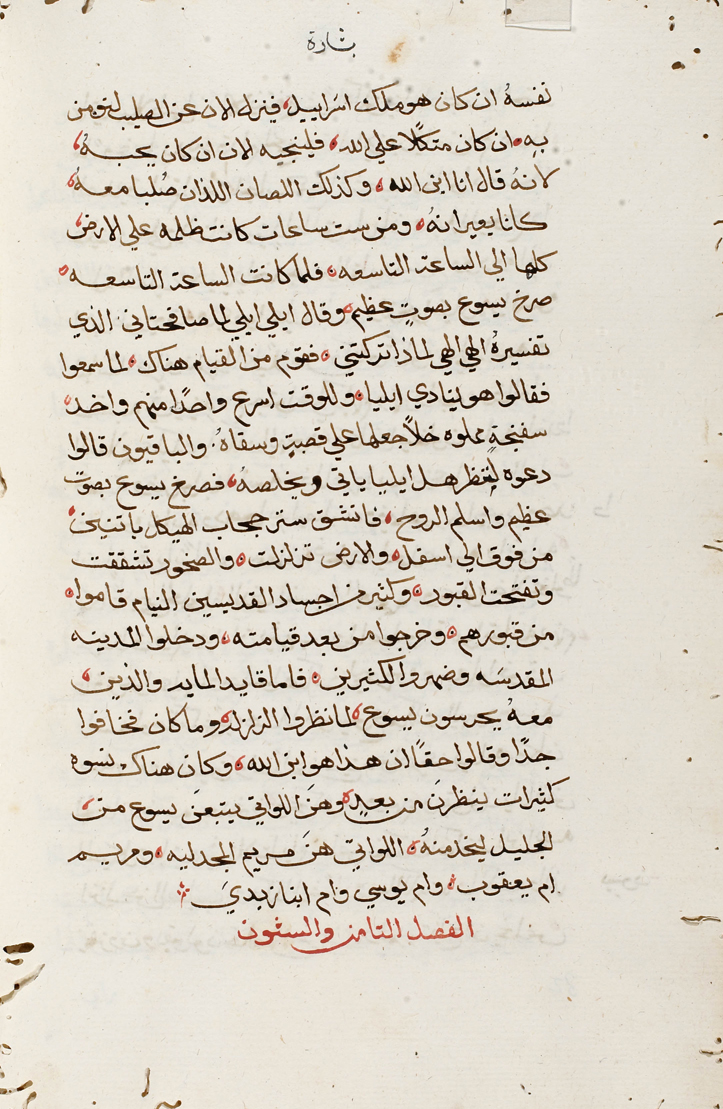 بشارة
نفسهُ ان كان هو ملك اسراييل فينزل الان عن الصليب لنومن
به ان كان متكلاً علي الله فلينجيه لان ان كان يحبهُ
لانهُ قال انا ابن الله وكذلك اللصان اللذان صُلبا معهُ
كانا يعيرانهُ ومن ست ساعات كانت ظلمه علي الارض
كلها الي الساعة التاسعه فلما كانت الساعة التاسعه
صرخ يسوع بصوتٍ عظيم وقال ايلي ايلي لما صافختاني الذي
تفسيرهُ الهي الهي لماذا تركتني فقوم من القيام هناك لما سمعوا
فقالوا هو ينادي ايليا وللوقت اسرع واحدًا منهم واخد
سفنجةٍ مملوه خلاً جعلها علي قصبةٍ وسقاهُ والباقيون قالوا
دعوه لننظر هل ايليا ياتي ويخلصهُ فصرخ يسوع بصوت
عظيم واسلم الروح فانشق ستر حجاب الهيكل باتنين
من فوق الي اسفل والارض تزلزلت والصخور تشققت
وتفتحت القبور وكثير من اجساد القديسين النيام قاموا
من قبورهم وخرجوا من بعد قيامته ودخلوا المدينه
المقدسَه وضهروا لكثيرين فاما قايد المايه والذين
معهُ يحرسون يسوع لما نظروا الزلزله وما كان فخافوا
جدًا وقالوا حقًا ان هذا هو ابن الله وكان هناك نسوه
كثيرات ينظرنَ من بعيدٍ وهنَ اللواتي يتبعنَ يسوع من
الجليل ليخدمنهُ اللواتي هنَ مريم المجدليه ومريم
ام يعقوب وام يوسي وام ابنا زبديَ
الفصل التامن والستون